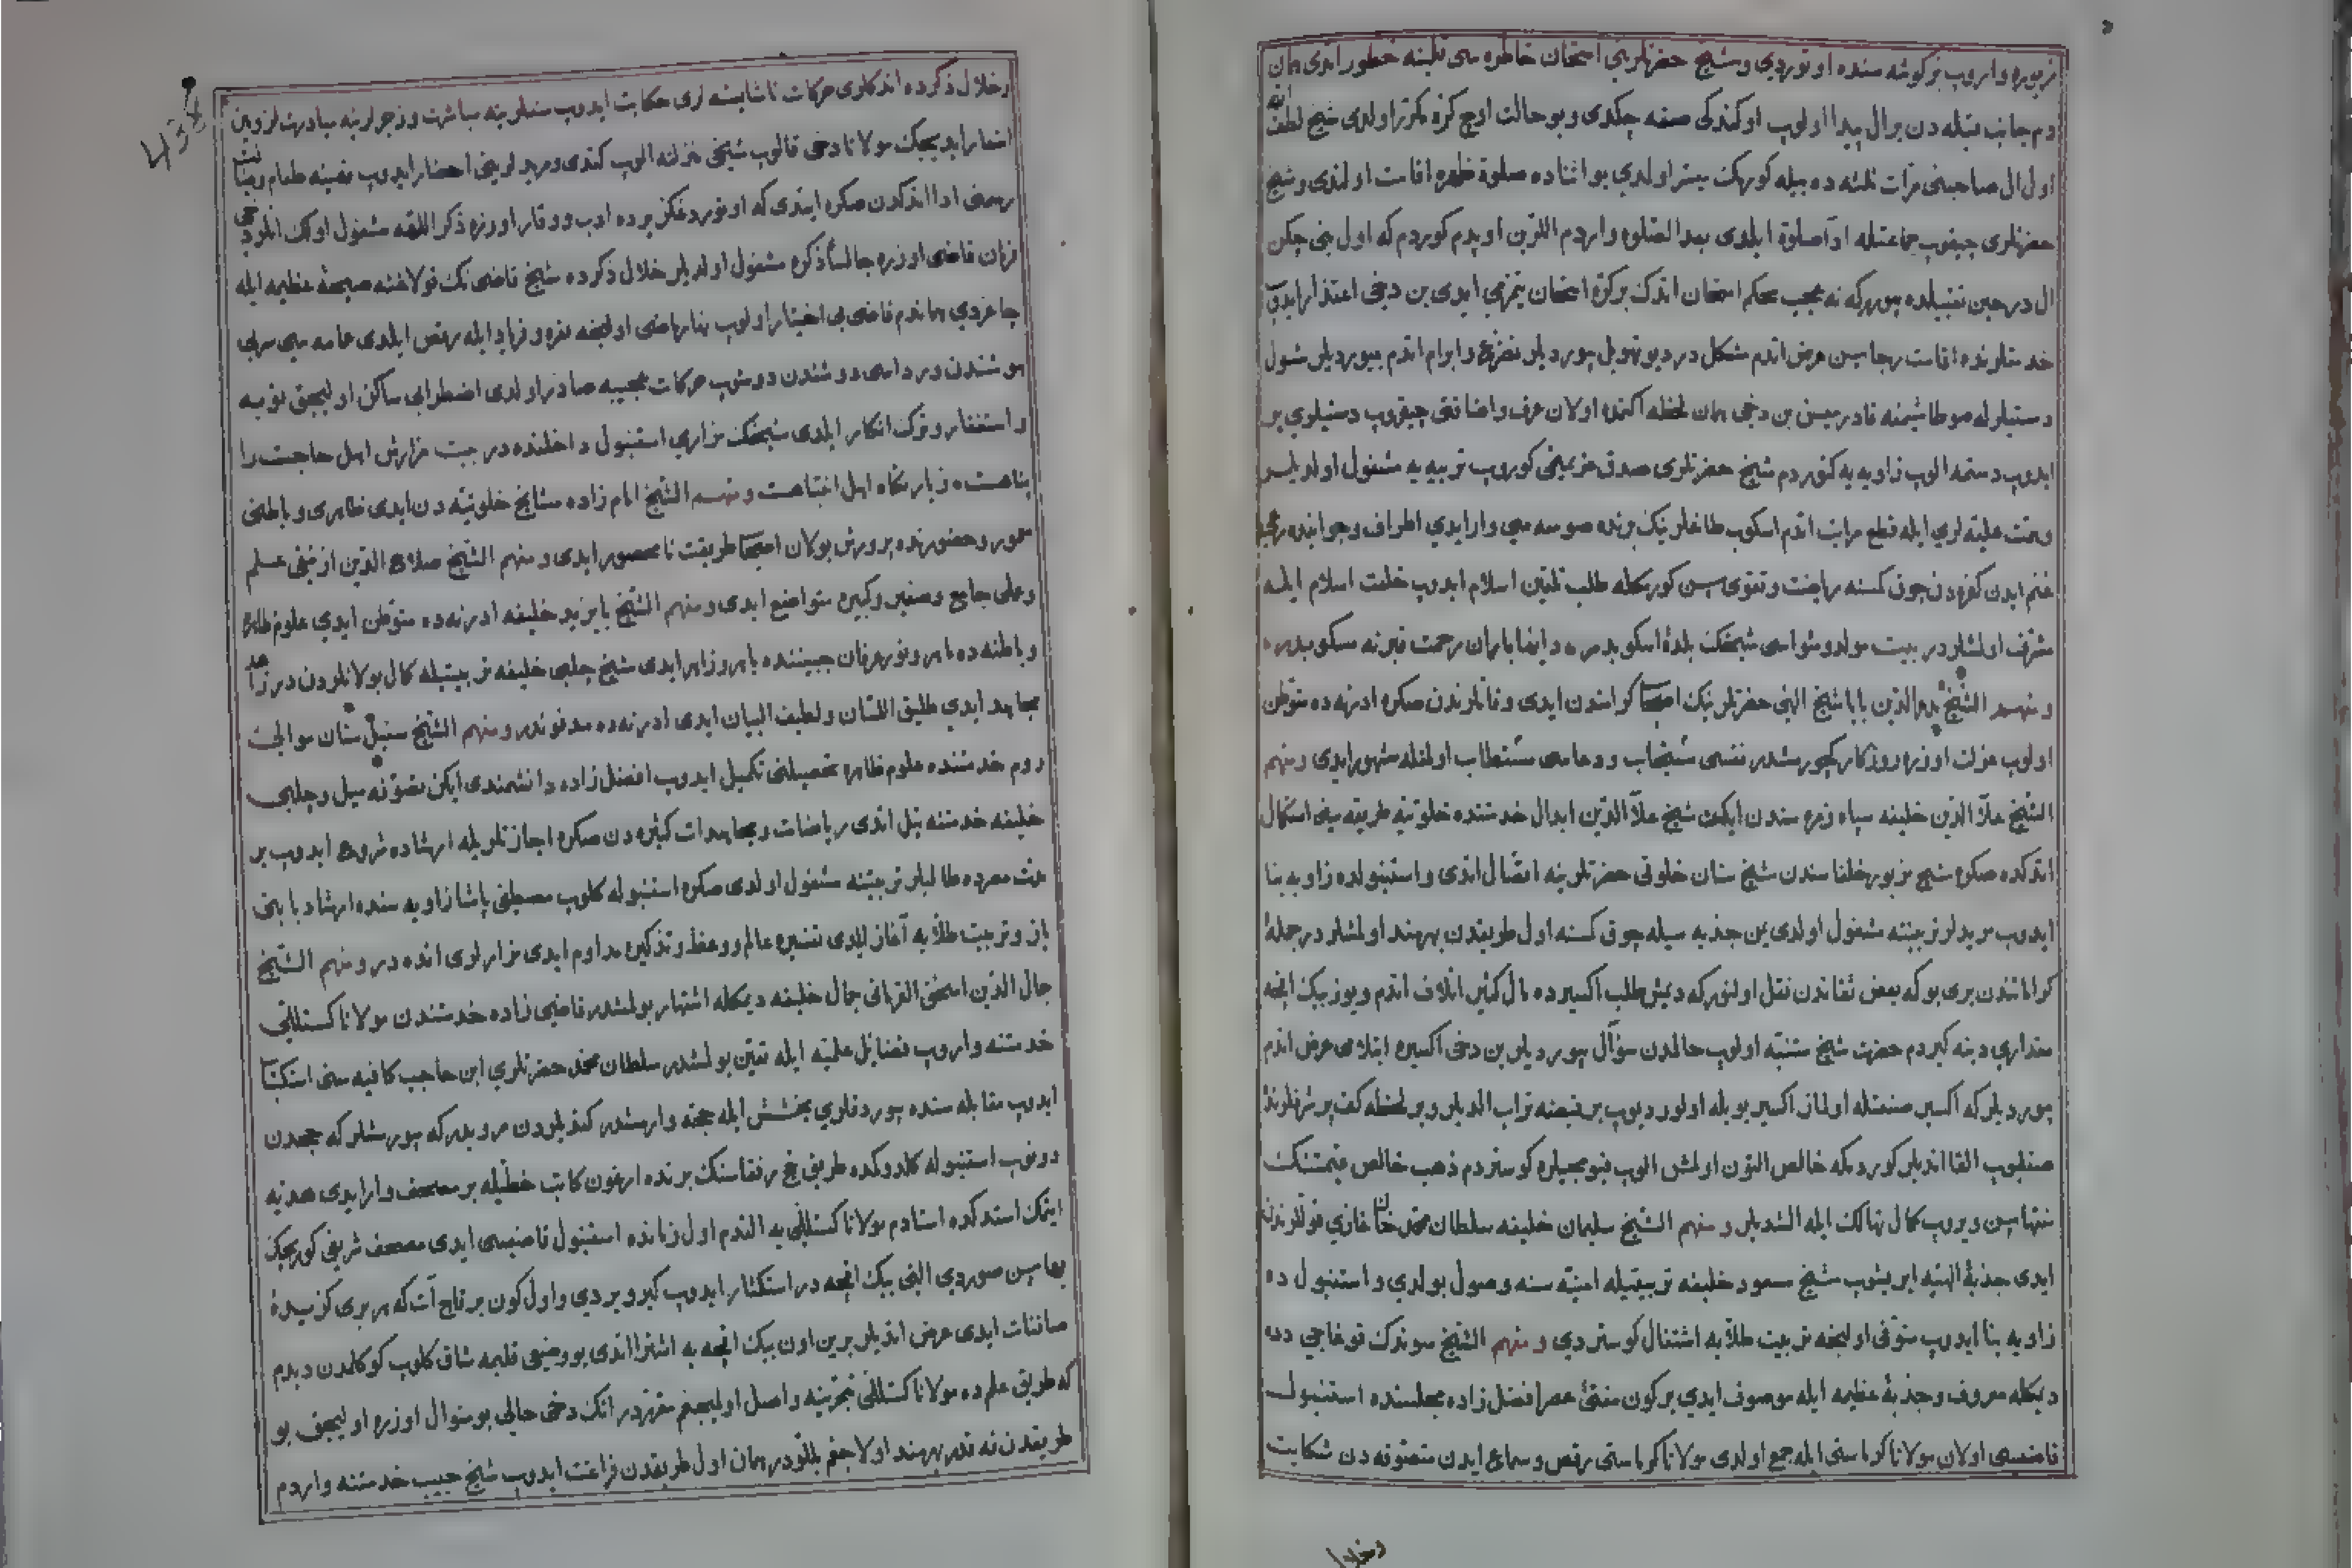 مزبوره واروب بر كوشه سنده اوتوردي وشيخ حضرتلريني امتحان خاطره سي قلبنه خطور ايتدى همان
دم جانب قبله دن بر ال پيدا اولوب اوكندكى صفه چكدى وبو حالت اوچ كره مكرر اولدى شيخ لطف الله
اول ال صاحبنى مرات ثلثه ده بيله كورمك ميسر اولدي بو اثناده صلوة ظهره اقامت اولندى وشيخ
حضرتلرى چيقوب جماعتله اداء صلوة ايلدى بعد الصلوه واردم اللرين اوپدم كوردم كه اول بنى چكن
ال در حين تقبيلده بيوردر كه نه عجب محكم امتحان اتدك بر كره امتحان يتمزمي ايدى بن دخى اعتذار ايدوب
خدمتلرنده اقامت رجاسين عرض اتدم مشكل در ديو تهويل بيورديلر تضرع وابرام اتدم بيورديلر شول
دستيلرله صو طاشيمنه قادر ميسن بن دخى همان لحظه اكنمده اولان صوف واضافتى چيقروب دستيلرى بر
ايدوب دستمه الوب زاويه يه كتوردم شيخ حضرتلرى صدق عزيمتى كوروب تربيه يه مشغول اولديلر
وهمت عليه لري ايله قطع مراتب اتدم اسكوب طاغلرينك برنده صومعه سي وار ايدي اطراف وجوانبنده
غنم ايدن كفره دن چوق كسنه رياضت وتقوى سن كورمكله طلب تلقين اسلام ايدوب خلعت اسلام ايله
مشرف اولمشلردر بيت مولد ومثواسى شيخك بلده اسكوبدر دائما باران رحمت قبرنه مسكوبدر
ومنهم الشيخ بدر الدين بابا شيخ الهى حضرتلرينك اصحاب كرامتدن ايدى وفاتلرندن صكره ادرنه ده متوطن
اولوب عزلت اوزره روزكار كچورمشدر نفسى مستجاب ودعاسى مستطاب اولمغله مشهور ايدى ومنهم
الشيخ علاء الدين خليفه سپاه زمره سندن ايكن شيخ علاء الدين ابدال خدمتنده خلوتيه طريقه سنى استكمال
اتدكده صكره شيخ مزبور خلفاسندن شيخ سنان خلوتى حضرتلرينه اتصال اتدى واستنبولده زاويه بنا
ايدوب مريدلر تربيتنه مشغول اولدى ين جذبه سيله چوق كسنه اول طريقدن بهرمند اولمشلردر جمله
كراماتندن برى بو كه بعض ثقاتدن نقل اولنور كه ديمش طلب اكسيرده مال كثير اتلاف اتدم ويوز بيك اقچه
مقدارى دينه كيردم حضرت شيخ متنبه اولوب حالمدن سؤال بيورديلر بن دخى اكسيره ابتلامى عرض اتدم
بيورديلر كه اكسير صنعتله اولماز اكسير بويله اولور ديوب بر قبضه تراب الديلر وبر لحظه كف پر شرفلرنده
صقلوب القا اتديلر كوردمكه خالص التون اولمش الوب قيومجيلره كوستردم ذهب خالص قيمتنك
منتهاسين ويروب كمال تهالك ايله الشديلر ومنهم الشيخ سليمان خليفه سلطان محمد خان غازي قوللرندن
ايدى جذبه الهيه ايريشوب شيخ مسعود خليفه تربيتيله امنيه سنه وصول بولدي واستنبول ده
زاويه بنا ايدوب متوفى اولنجه تربيت طلابه اشتغال كوستردي ومنهم الشيخ سوندك قوغاجي دده
ديمكله معروف وجذبه عظيمه ايله موصوف ايدي بر كون مفتئ عصر افضل زاده مجلسنده استنبول
قاضيسى اولان مولانا كرماستى ايله جمع اولدى مولانا كرماستى رقص وسماع ايدن متصوفه دن شكايت
وخلال
وخلال ذكرده اتدكلرى حركات ناشايسته لرى حكايت ايدوب منعلرينه مباشرت وزجرلرينه مبادرت لزومن
اشعار ايديجك مولانا دخى قالقوب شيخى منزلنه الوب كتدى ومريدلرينى احضار ايدوب نفسينه طعام وضيافت
رسمنى ادا اتدكدن صكره ايتدى كه اوتوردغكز يرده ادب ووقار اوزره ذكر اللهه مشغول اولك انلر دخى
فرمان قاضى اوزره جالسا ذكره مشغول اولديلر خلال ذكرده شيخ قاضى نك قولاغنه صيحه عظيمه ايله
چاغردي هماندم قاضى بى اختيار اولوب نعره وفرياد ايله رقص ايلدى عمامه سي سربى
هوشندن ورداسى دوشندن دوشوب حركات عجيبه صادر اولدى اضطرابى ساكن اوليجق توبه
واستغفار وترك انكار ايلدى شيخك مزاري استنبول داخلنده در بيت مزارش اهل حاجت را
پناهست ه زيارتگاه اهل انتباهست ومنهم الشيخ امام زاده مشايخ خلوتيه دن ايدى ظاهرى وباطنى
معمور وحضورنده پرورش بولان اصحاب طريقت نا محصور ايدى ومنهم الشيخ صلاح الدين ازنيقى علم
وعملى جامع وصغير وكبيره متواضع ايدى ومنهم الشيخ بايزيد خليفه ادرنه ده متوطن ايدي علوم ظاهره
وباطنه ده ماهر ونور عرفان جبيننده باهر وزاهر ايدى شيخ چلبى خليفه تربيتيله كمال بولانلردن در زاهد
مجاهد ايدي طليق اللسان ولطيف البيان ايدى ادرنه ده مدفوندر ومنهم الشيخ سنبل سنان موالئ
روم خدمتنده علوم ظاهره تحصيلنى تكميل ايدوب افضل زاده دانشمندى ايكن تصوفه ميل وچلبى
خليفه خدمتنه نيل اتدى رياضات ومجاهدات كثيره دن صكره اجازتلريله ارشاده شروع ايدوب بر
مدت مصرده طالبلر تربيتنه مشغول اولدى صكره استنبوله كلوب مصطفى پاشا زاويه سنده ارشاد بابنى
باز وتربيت طلابه آغاز ايلدى تفسيره عالم ووعظ وتذكيره مداوم ايدى مزارلرى انده در ومنهم الشيخ
جمال الدين اسحق القرمانى جمال خليفه ديمكله اشتهار بولمشدر قاضى زاده خدمتندن مولانا كستللى
خدمتنه واروب فضائل علميه ايله تعين بولمشدر سلطان محمد حضرتلري ابن حاجب كافيه سنى استكتاب
ايدوب مقابله سنده بيوردقلرى بخشش ايله حجه وارمشدر كنديلردن مرويدر كه بيورمشلر كه حجدن
دونوب استنبوله كلدوكده طريق حج رفقاسنك برنده ارغون كاتب خطيله بر مصحف وار ايدى هديه
ايتمك استدكده استادم مولانا كستللى يه الندم اول زمانده استنبول قاضيسى ايدى مصحف شريفى كوريجك
بهاسين صوردي التى بيك اقچه در استكثار ايدوب كيرو ويردي واول كون بر قاچ آت كه هر برى كزيده
صافنات ايدى عرض اتديلر برين اون بيك اقچه يه اشترا اتدى بو وضعى قلبمه شاق كلوب كوكلمدن ديدم
كه طريق علم ده مولانا كستللى مرتبه سنه واصل اوليجغم مقرردر انك دخى حالي بو منوال اوزره اوليجق بو
طريقدن نه قدر بهرمند اولاجغم بللودر همان اول طريقدن فراغت ايدوب شيخ حبيب خدمتنه واردم